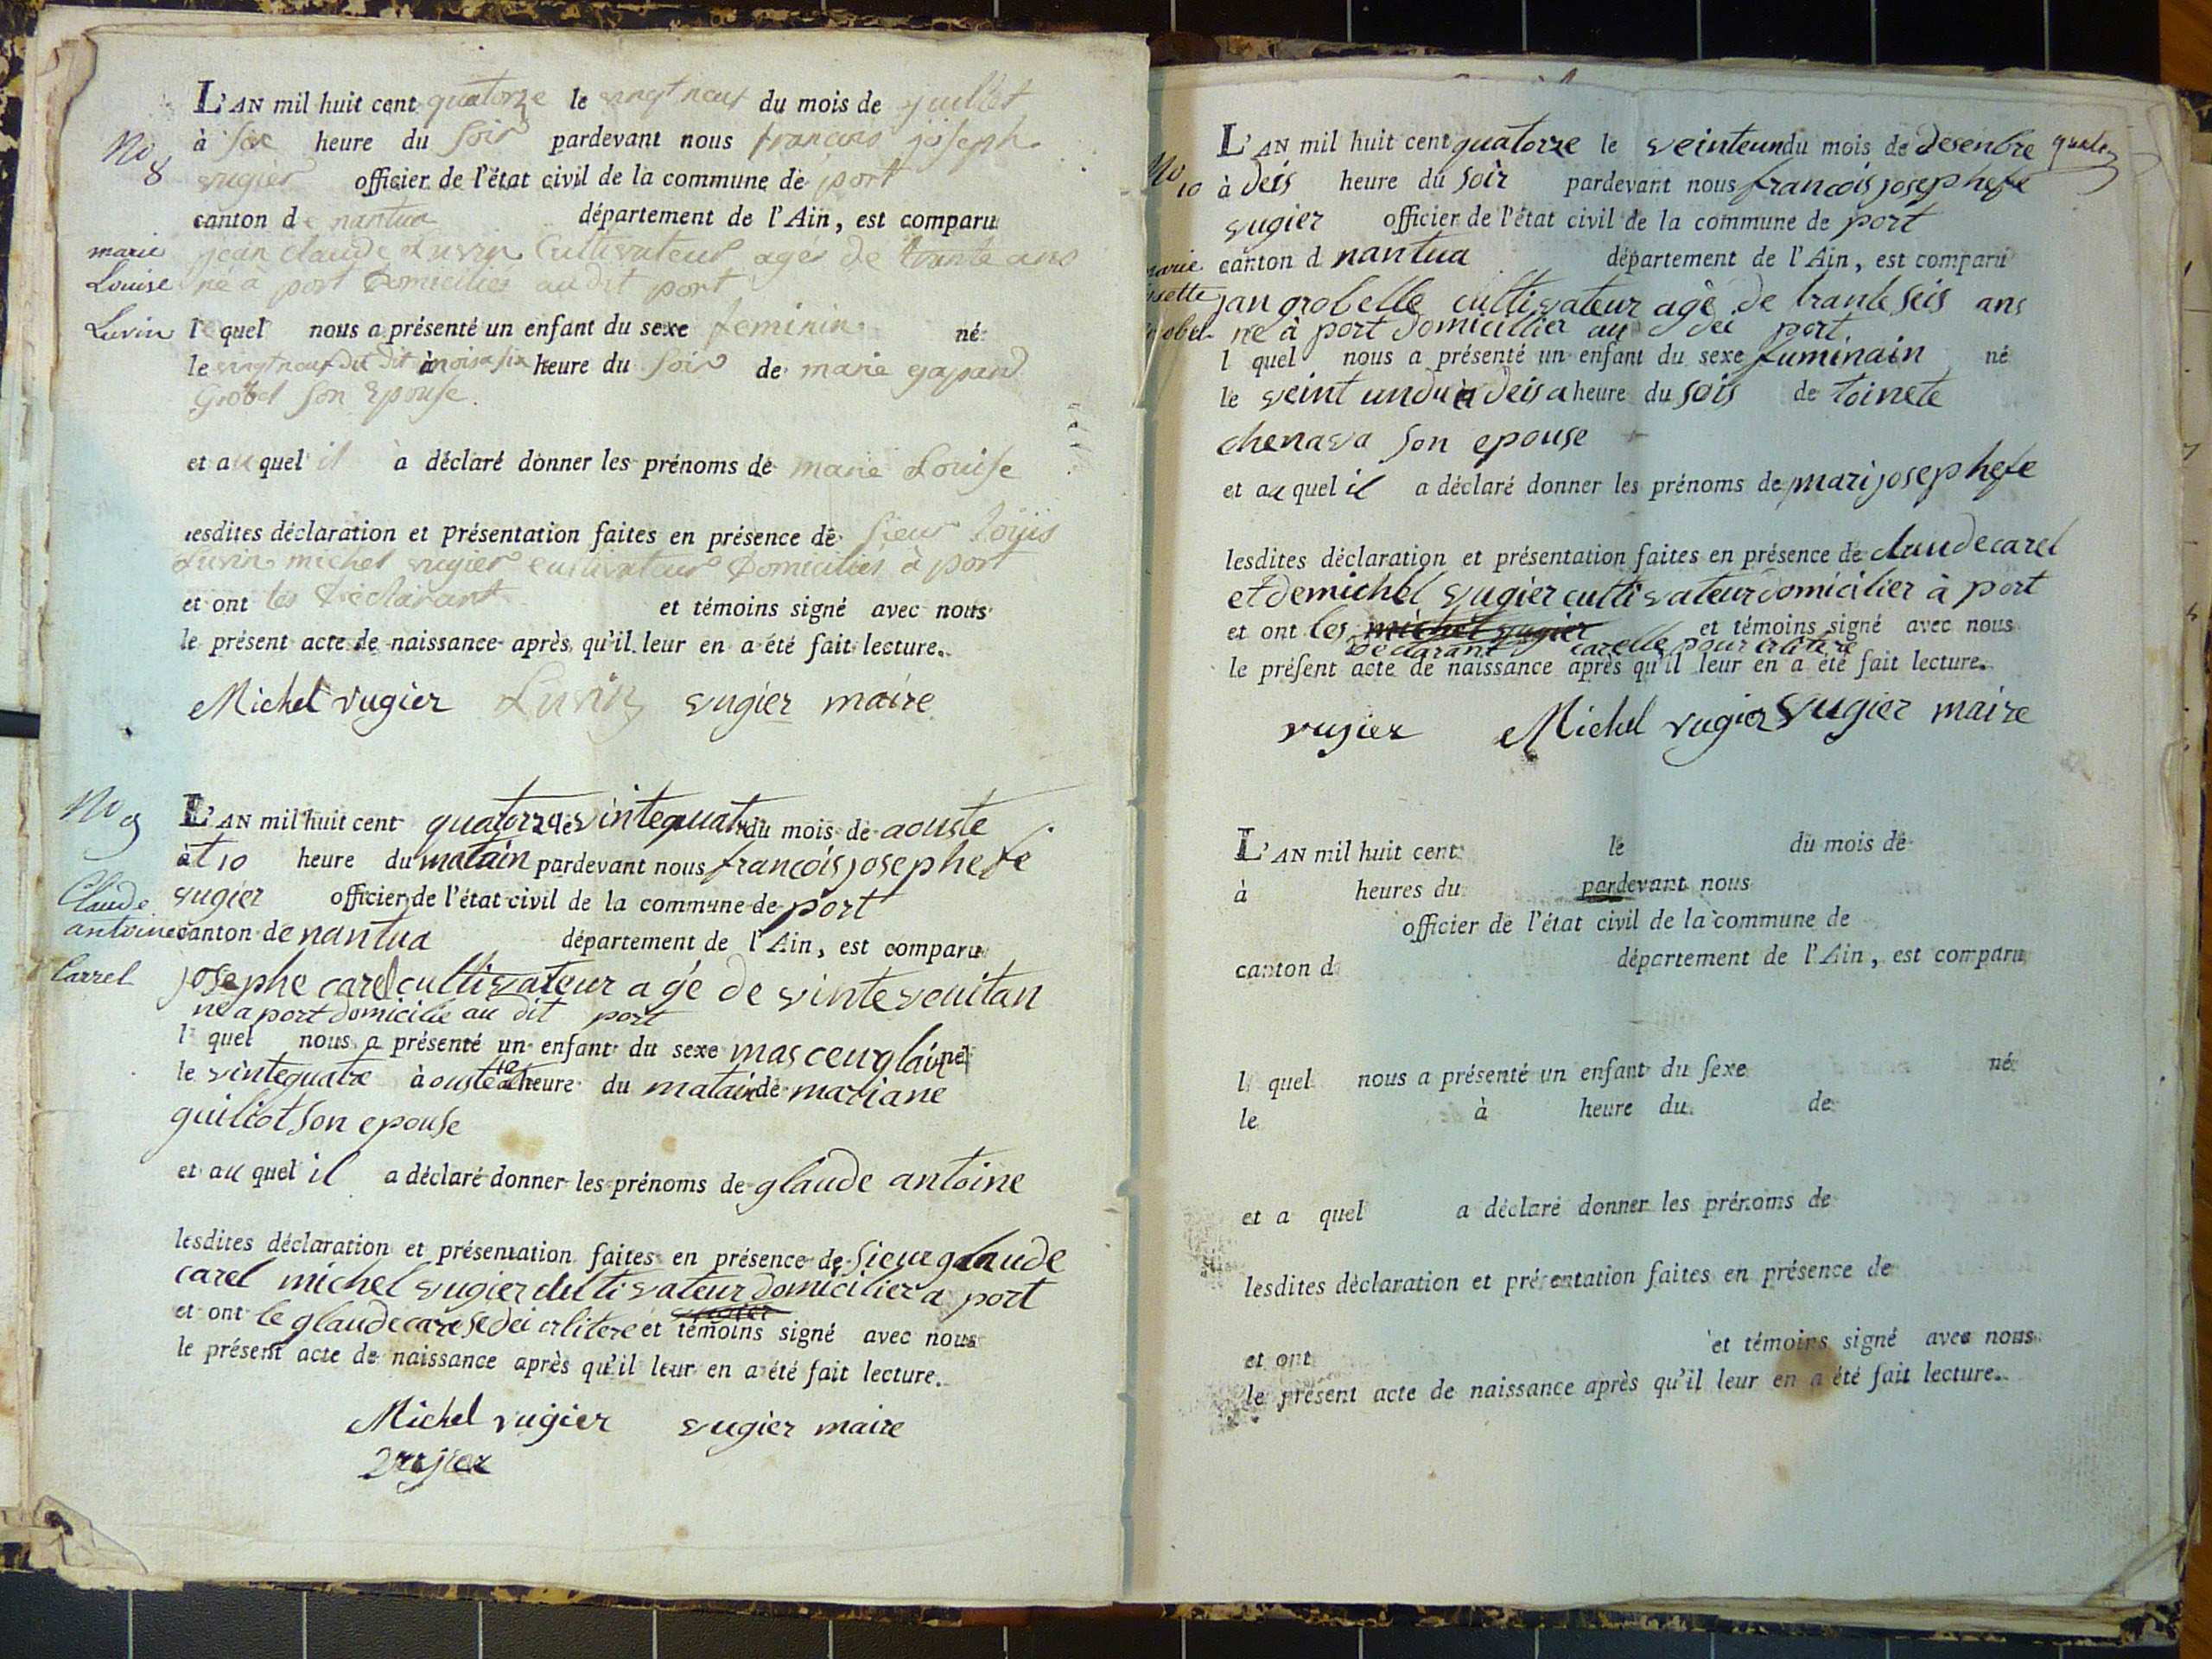 No 8
marie
Louise
Luvin
L'AN mil huit cent quatorze le vingt neuf du mois de juillet
à six heure du soir pardevant nous francois joseph
vugier officier de l'état civil de la commune de port
canton de nantua département de l'Ain, est comparu
jean claude Luvin Cultivateur agés de trante ans
né à port Domiciliés au dit port
lequel nous a présenté un enfant du sexe feminin né
le vingt neuf du dit mois a six heure du soir de marie gapard
Grobel son Epouse.
et auquel il à déclaré donner les prénoms de marie Louise
lesdites déclaration et présentation faites en présence de sieur
Luvin michel vugier cultivateur Domiciliés à port
et ont les Déclarant et témoins signé avec nous
le présent acte de naissance après qu'il leur en a été fait lecture.
Michel vugier Luvin vugier maire
No 9
Claude
antoine
Carrel
L'AN mil huit cent quatorze le vintequatre du mois de aouste
à 10 heure du matain pardevant nous francois josephefe
vugier officier de l'état civil de la commune de port
canton de nantua département de l'Ain, est comparu
josephe carel cultivateur agé de vinte veuitan
né a port domicilie au dit port
l quel nous a présenté un enfant du sexe masceuglain né
le vintequatre àouste 10 heure du matain de mariane
guillot son epouse
et au quel il a déclaré donner les prénoms de glaude antoine
lesdites déclaration et présentation faites en présence de sieur glaude
carel michel vugier cultivateur domicilier a port
et ont le glaude carel et témoins signé avec nous
le présent acte de naissance après qu'il leur en a été fait lecture.
Michel vugier vugier maire
vugier
No 10
L'AN mil huit cent quatorze le veinteun du mois de desenbre
à deis heure du soir pardevant nous francois josephefe
vugier officier de l'état civil de la commune de port
canton d nantua département de l'Ain, est comparu
jan grobelle cultivateur agé de trante seis ans
né à port domicillier au dei port
l quel nous a présenté un enfant du sexe fuminain né
le veint un du a deis a heure du sois de toinete
chenava son epouse
et au quel il a déclaré donner les prénoms de mari josephefe
lesdites déclaration et présentation faites en présence de claude carel
et de michel vugier cultivateur domicilier à port
et ont les michel vugier et témoins signé avec nous
declarant carelle pour
le présent acte de naissance après qu'il leur en a été fait lecture.
vugier Michel vugier vugier maire
L'AN mil huit cent le du mois de
à heures du pardevant nous
officier de l'état civil de la commune de
canton d département de l'Ain, est comparu
l quel nous a présenté un enfant du sexe né
le à heure du de
et a quel a déclaré donner les prénoms de
lesdites déclaration et présentation faites en présence de
et ont et témoins signé avec nous
le présent acte de naissance après qu'il leur en a été fait lecture.